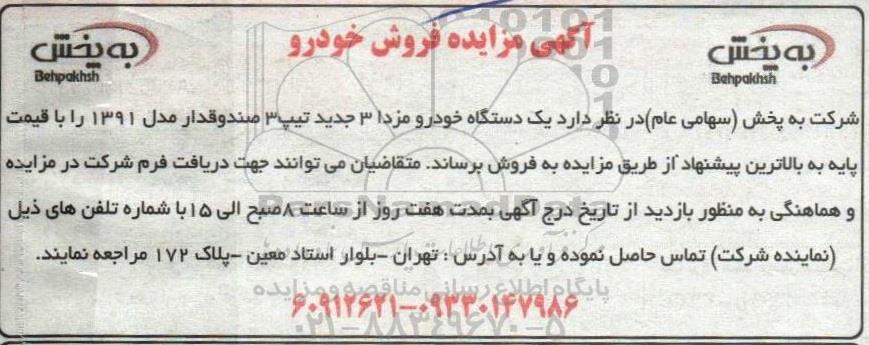 آگهی مزایده فروش خودرو
به پخش
Behpakhsh
به پخش
Behpakhsh
شرکت به پخش (سهامی عام)در نظر دارد یک دستگاه خودرو مزدا ۳ جدید تیپ۳ صندوقدار مدل ۱۳۹۱ را با قیمت
پایه به بالاترین پیشنهاد از طریق مزایده به فروش برساند. متقاضیان می توانند جهت دریافت فرم شرکت در مزایده
و هماهنگی به منظور بازدید از تاریخ درج آگهی بمدت هفت روز از ساعت ۸صبح الی ۱۵با شماره تلفن های ذیل
(نماینده شرکت) تماس حاصل نموده و یا به آدرس : تهران –بلوار استاد معین –پلاک ۱۷۲ مراجعه نمایند.
پایگاه اطلاع رسانی مناقصه و مزایده
۶۰۹۱۲۶۲۱–۰۹۳۳۰۱۴۷۹۸۶
۰۲۱–۸۸۳۴۹۶۷۰–۵